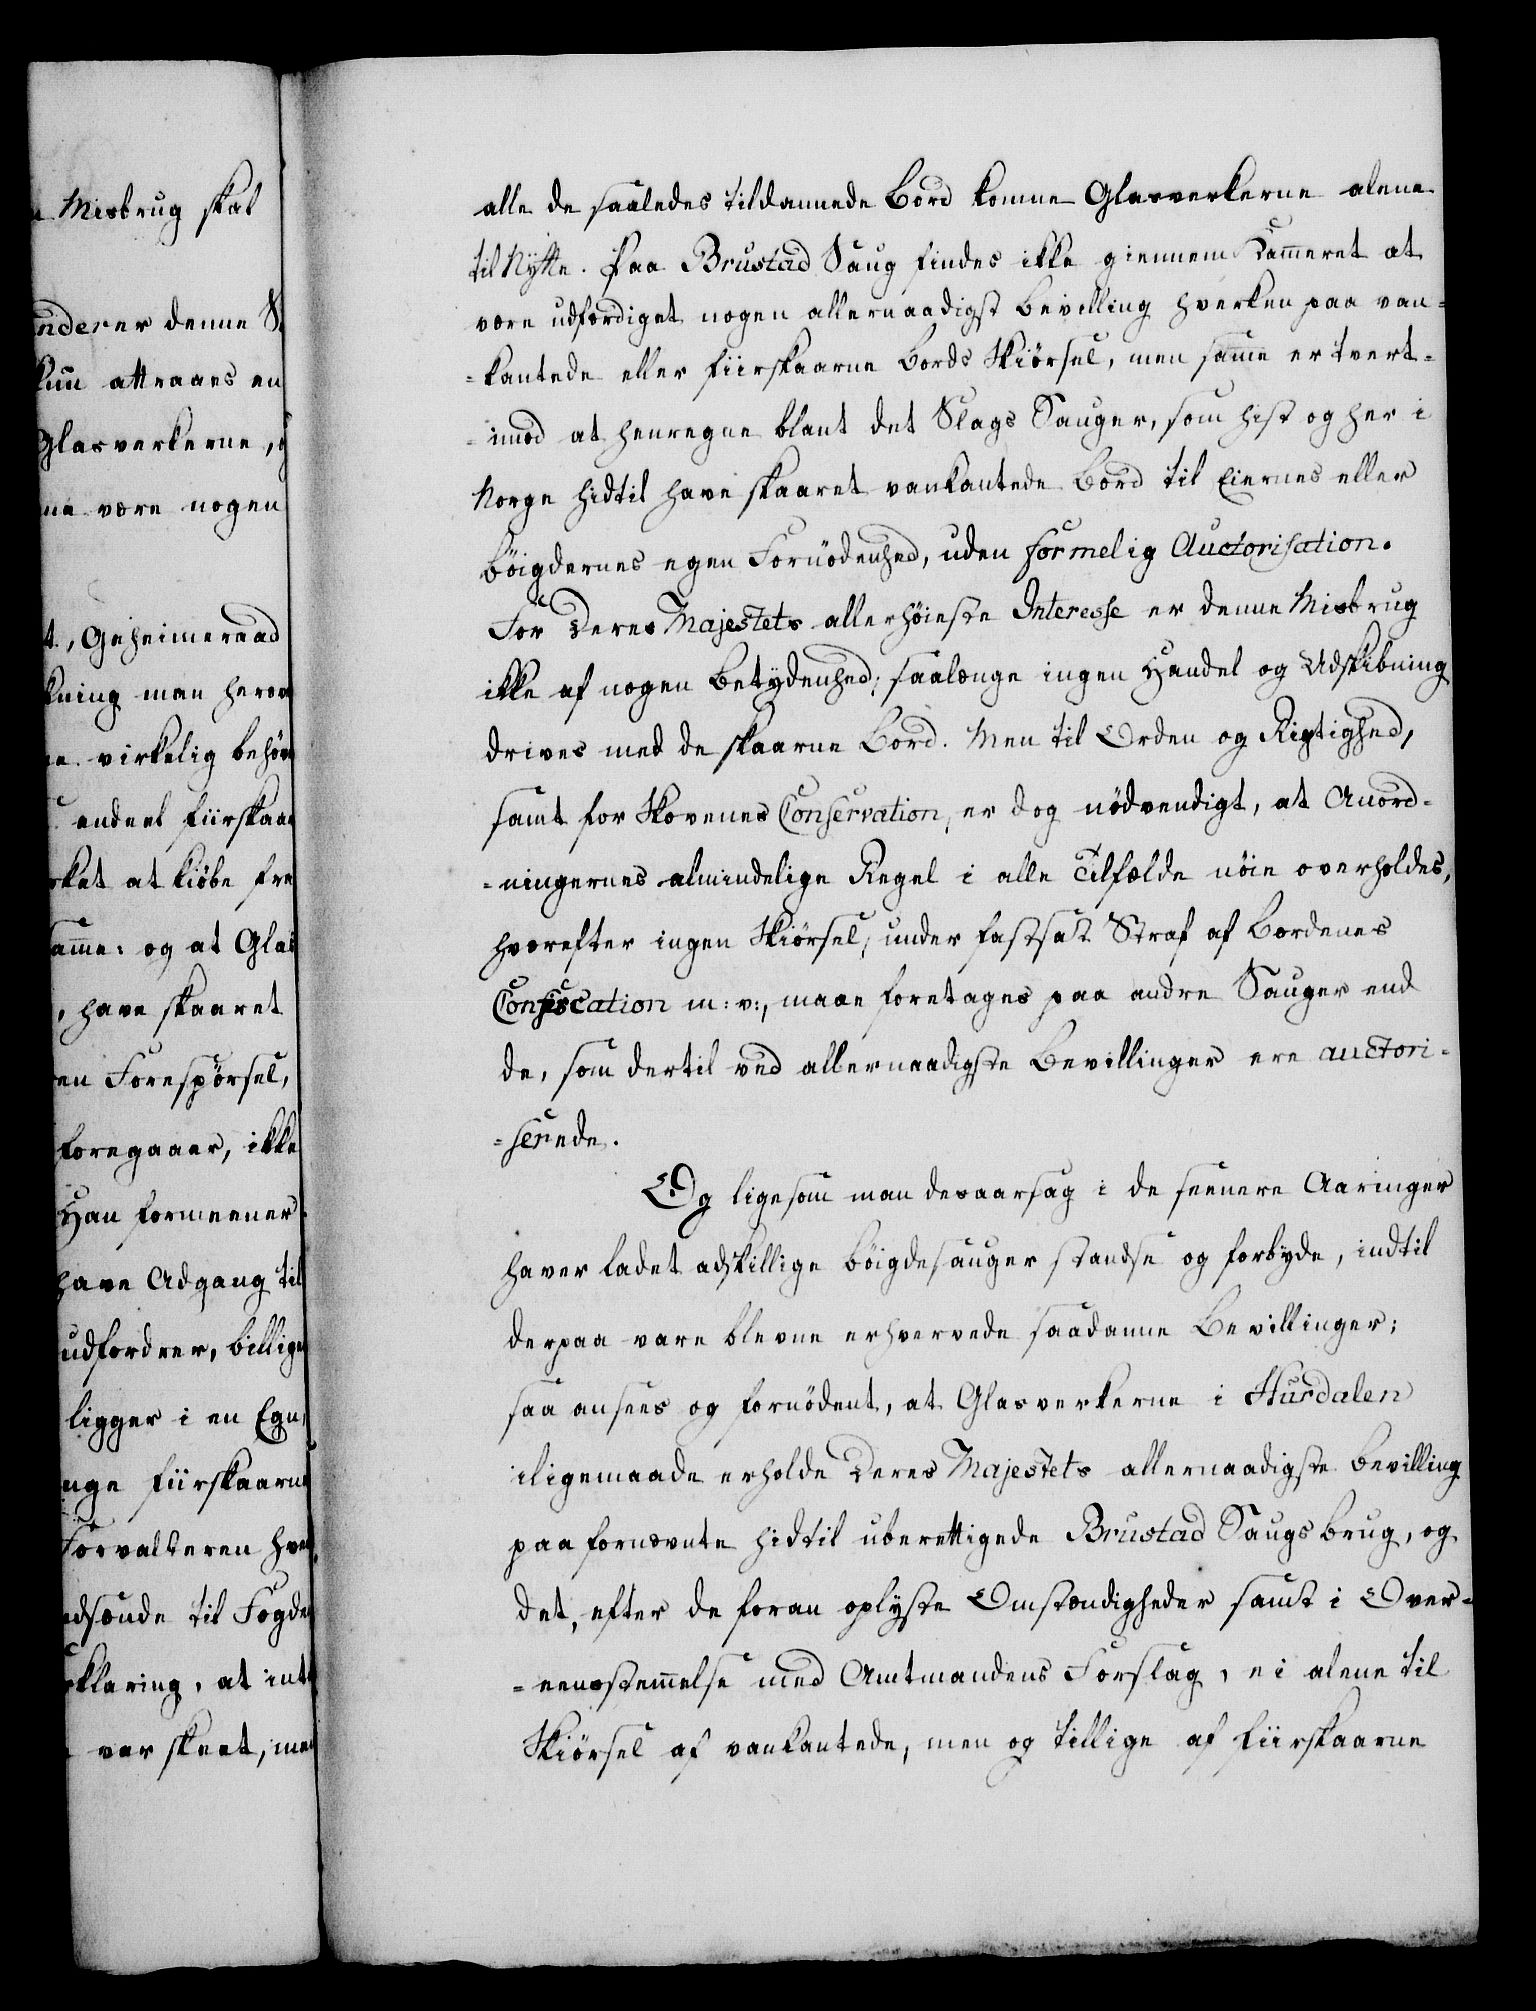 Misbrug skal
nderer denne S
kun attraaes en
Glasverkerne, o
ne være nogen
t, Geheimeraad
kning man herov
ne virkelig behöv
endeel fiirskaar
rket at kiöbe fra
samme: og at Glas
, have skaaret
en Forespörsel,
foregaaer, ikke
Han formeener
have Adgang til
udfordrer, billige
ligger i en Egn,
nge fiirskaarne
Forvalteren hve
adsende til Fogde
rklaring, at int
var skeet, men
alle de saaledes tildannede Bord komme Glasverkerne alene
til Nytte. Paa Brustad Saug findes ikke giennem Kam̅eret at
være udfærdiget nogen allernaadigst Bevilling hverken paa van-
-kantede eller fiirskaarne Bords Skiörsel, men sam̅e er tvert-
-imod at henregne blant det Slags Sauger, som hist og her i
Norge hidtil have skaaret vankantede Bord til Eiernes eller
Böigdernes egen Fornödenhed, uden formelig Auctorisation.
For Deres Majestets allerhöieste Interesse er denne Misbrug
ikke af nogen Betydenhed; saalænge ingen Handel og Udskibning
drives med de skaarne Bord. Men til Orden og Rigtighed,
samt for Skovenes Conservation, er dog nödvendigt, at Anord-
-ningernes almindelige Regel i alle Tilfælde nöie overholdes,
hvorefter ingen Skiörsel, under fastsat Straf af Bordenes
Confiscation m: v:, maae foretages paa andre Sauger end
de, som dertil ved allernaadigste Bevillinger ere auctori-
-serede.
Og ligesom man desaarsag i de seenere Aaringer
haver ladet adskillige Böigdesauger standse og forbyde, indtil
derpaa vare blevne erhvervede saadanne Bevillinger;
saa ansees og fornödent, at Glasverkerne i Hurdalen
iligemaade erholde Deres Majestets allernaadigste Bevilling
paa fornævnte hidtil uberettigede Brustad Saugsbrug, og
det, efter de foran oplyste Omstændigheder samt i Over-
-eensstem̅else med Amtmandens Forslag, ei alene til
Skiörsel af vankantede, men og tillige af fiirskaarne